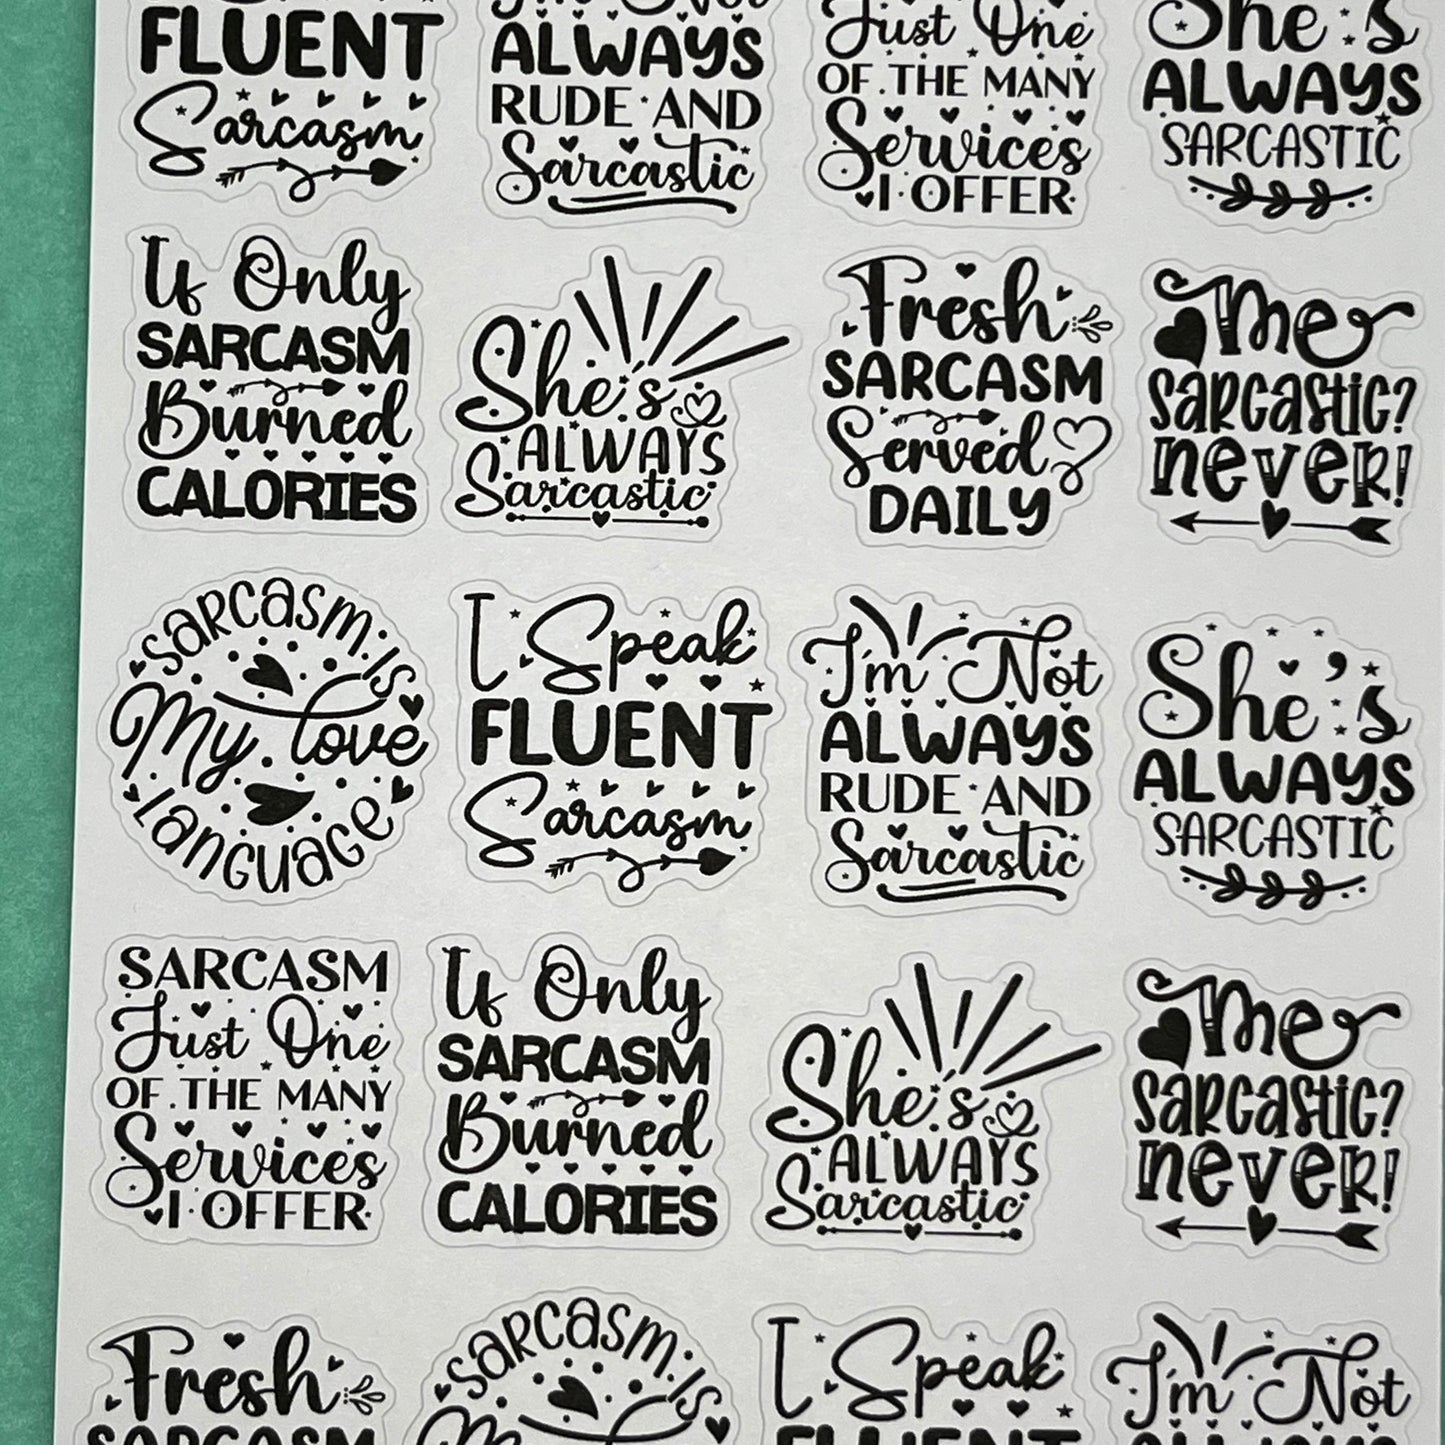 FLUENT
Sarcasm
I'm Not
ALWAYS
RUDE AND
Sarcastic
Just One
OF THE MANY
Services
I OFFER
She's
ALWAYS
SARCASTIC
If Only
SARCASM
Burned
CALORIES
She's
ALWAYS
Sarcastic
Fresh
SARCASM
Served
DAILY
Me
sarcastic?
never!
sarcasm is
My love
language
I Speak
FLUENT
Sarcasm
I'm Not
ALWAYS
RUDE AND
Sarcastic
She's
ALWAYS
SARCASTIC
SARCASM
Just One
OF THE MANY
Services
I OFFER
If Only
SARCASM
Burned
CALORIES
She's
ALWAYS
Sarcastic
Me
sarcastic?
never!
Fresh
SARCASM
sarcasm is
My
I Speak
FLUENT
I'm Not
ALWAYS